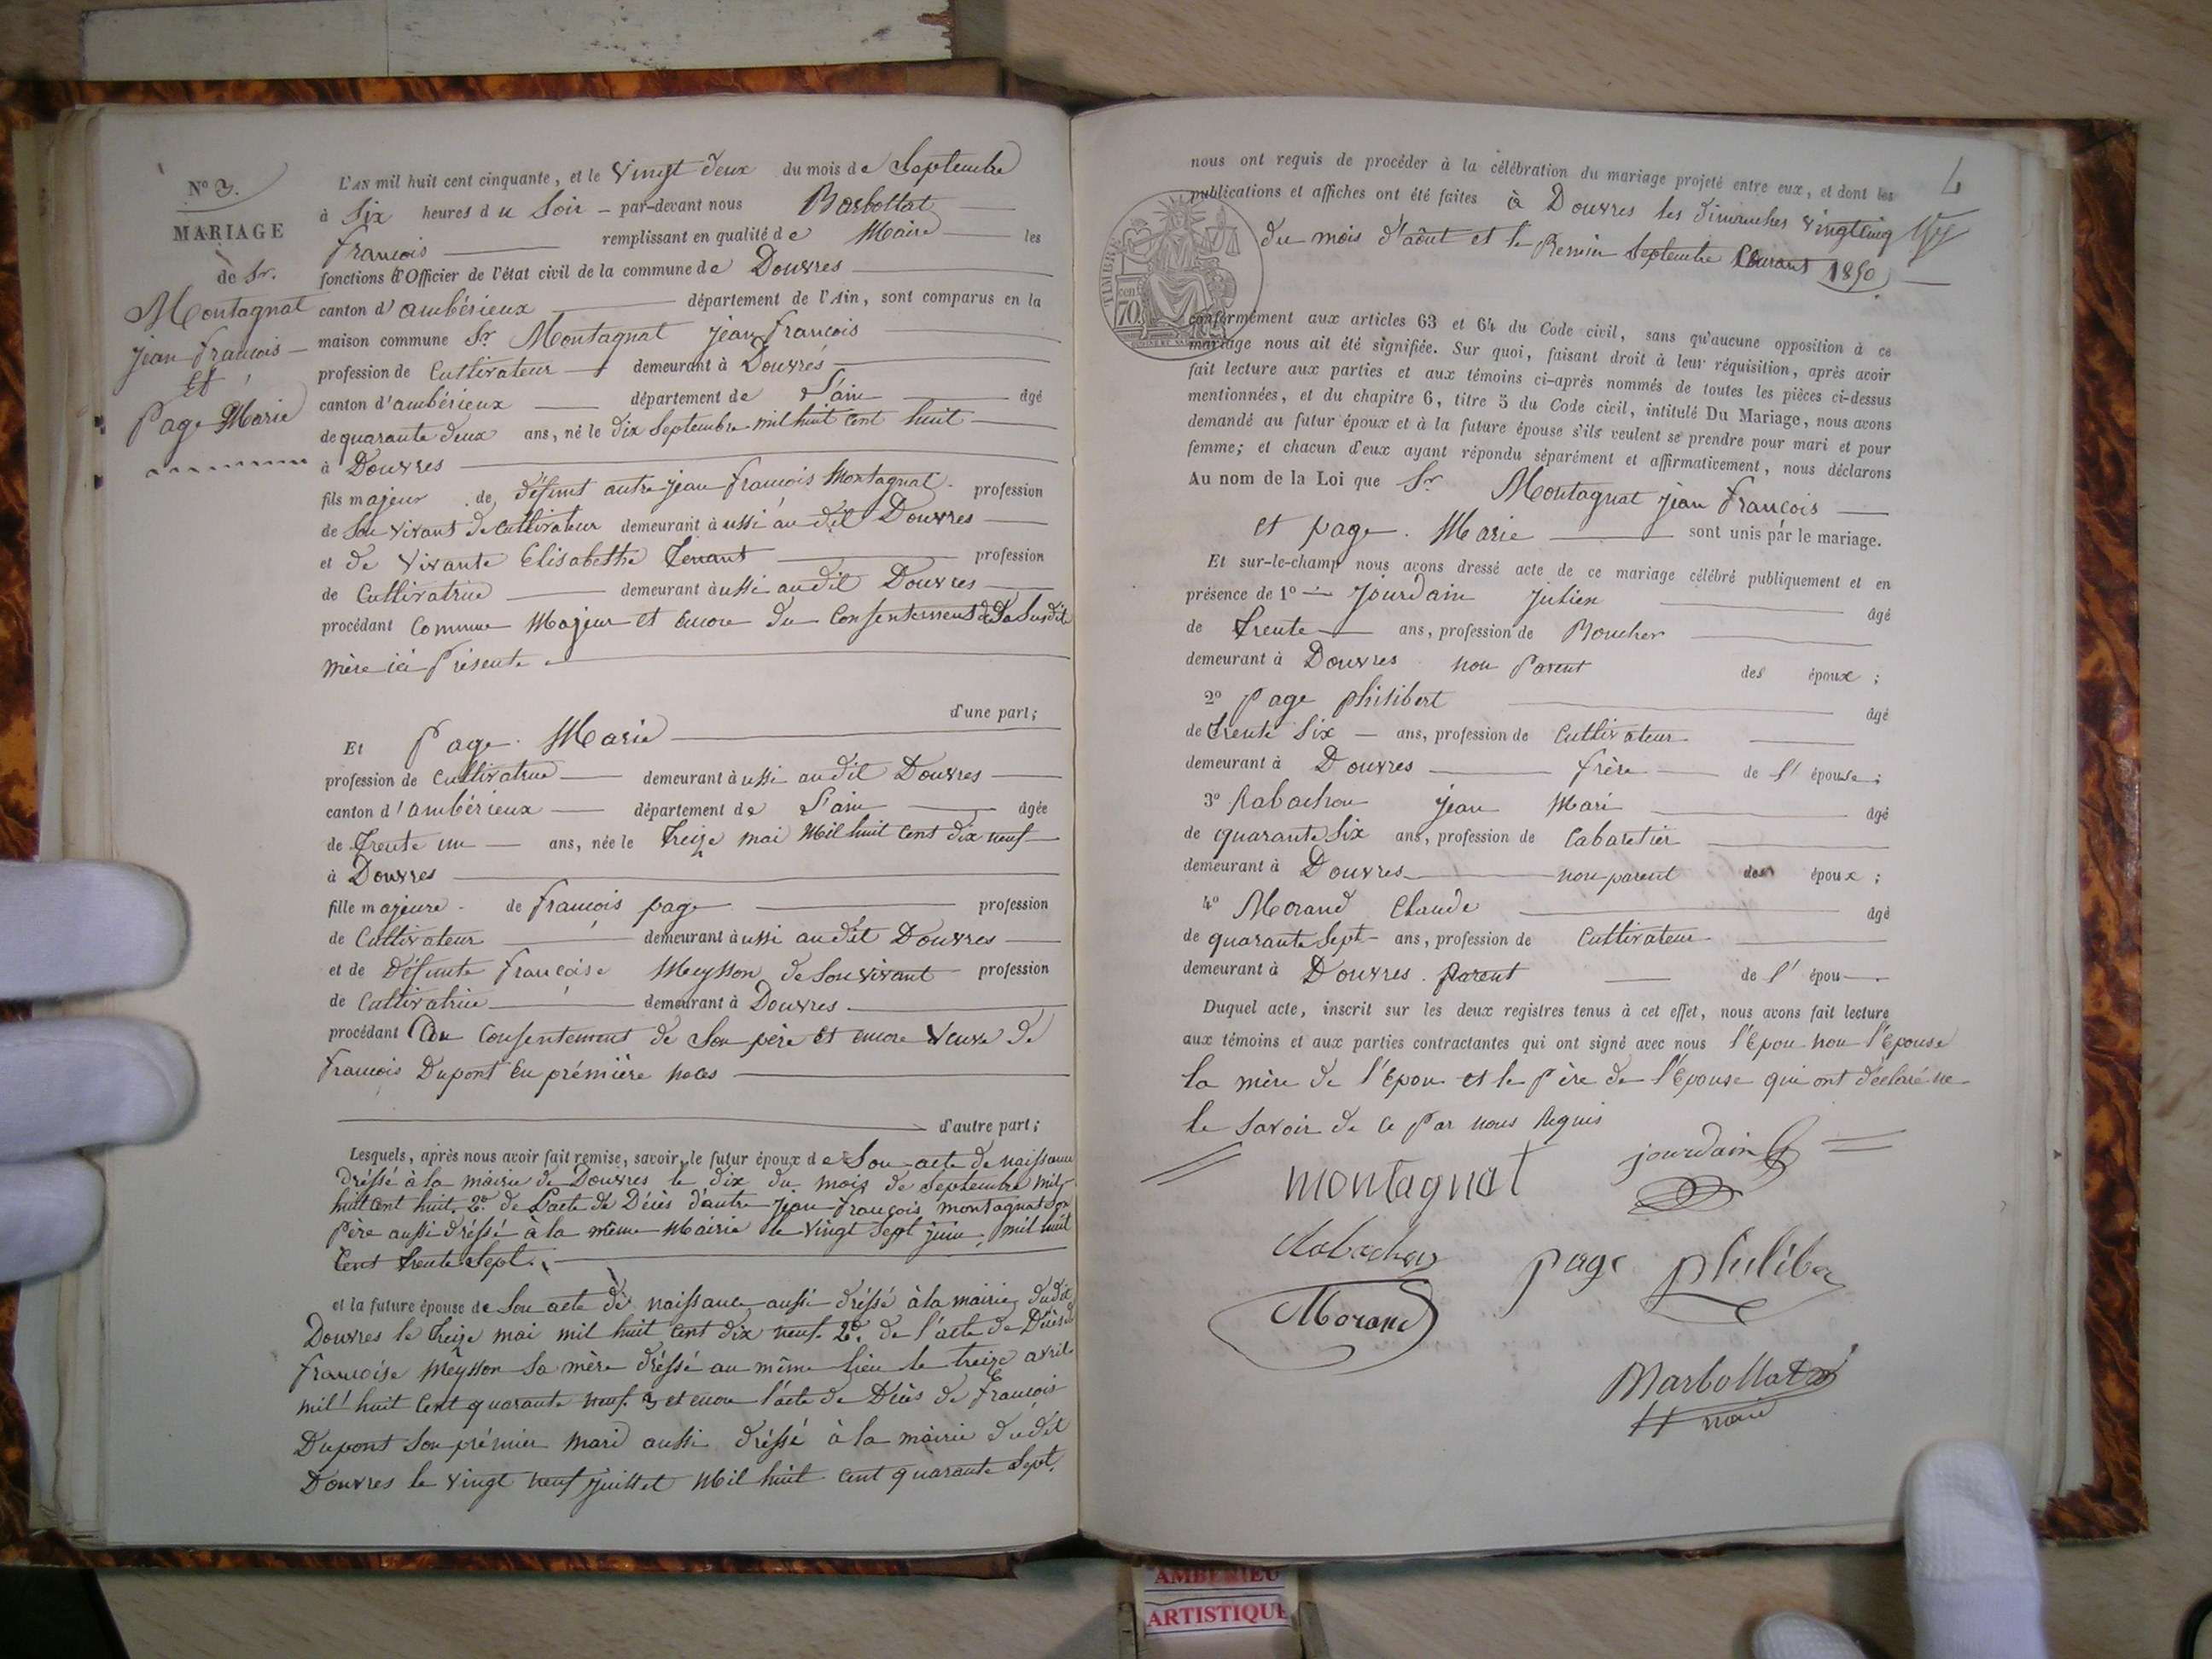 N° 3.
MARIAGE
de Sr.
Montagnat
jean françois
et
Page Marie
L'AN mil huit cent cinquante, et le vingt deux du mois de Septembre
à Six heures du Soir par-devant nous Barbollat
françois remplissant en qualité de Maire les
fonctions d'Officier de l'état civil de la commune de Douvres
canton d'ambérieux département de l'Ain, sont comparus en la
maison commune Sr Montagnat jean françois
profession de Cultivateur demeurant à Douvres
canton d'ambérieux département de l'ain âgé
de quarante deux ans, né le dix Septembre mil huit cent huit
à Douvres
fils majeur de défunt autre jean françois Montagnat profession
de Son vivant de Cultivateur demeurant à ussi au dit Douvres
et de vivante Elisabethe Tenant profession
de Cultivatrice demeurant à ussi audit Douvres
procédant Comme Majeur et encore du Consentement de Sa Susdite
mère ici Présente
d'une part;
Et Page Marie
profession de Cultivatrice demeurant à ussi audit Douvres
canton d'ambérieux département de l'ain âgée
de Trente un ans, née le Treize mai Mil huit Cent dix neuf
à Douvres
fille majeure de françois page profession
de Cultivateur demeurant à ussi audit Douvres
et de Défunte françoise Meysson de Son vivant profession
de Cultivatrice demeurant à Douvres
procédant Du Consentement de Son père et encore veuve de
François Dupont En prémière noces
d'autre part;
Lesquels, après nous avoir fait remise, savoir, le futur époux de Son acte de naissance
dréssé à la mairie de Douvres le dix du mois de septembre mil
huit cent huit. 2° de L'acte de Décès d'autre jean françois montagnat Son
Père aussi dréssé à la même Mairie le vingt Sept juin mil huit
Cent trente Sept.
et la future épouse de Son acte de naissance aussi dréssé à la mairie dudit
Douvres le Treize mai mil huit Cent dix neuf. 2° de l'acte de Décès d
françoise Meysson Sa mère dréssé au même lieu le treize avril
mil huit Cent quarante neuf. 3 et encore l'acte de Décès de François
Dupont Son prémier mari aussi dréssé à la mairie dudit
Douvres le vingt neuf juillet Mil huit Cent quarante Sept.
nous ont requis de procéder à la célébration du mariage projeté entre eux, et dont les
publications et affiches ont été faites à Douvres les dimanches vingt cinq
du mois d'août et le Premier Septembre Courant 1850
TIMBRE
70
conformément aux articles 63 et 64 du Code civil, sans qu'aucune opposition à ce
mariage nous ait été signifiée. Sur quoi, faisant droit à leur réquisition, après avoir
fait lecture aux parties et aux témoins ci-après nommés de toutes les pièces ci-dessus
mentionnées, et du chapitre 6, titre 5 du Code civil, intitulé Du Mariage, nous avons
demandé au futur époux et à la future épouse s'ils veulent se prendre pour mari et pour
femme; et chacun d'eux ayant répondu séparément et affirmativement, nous déclarons
Au nom de la Loi que Sr Montagnat jean françois
et page Marie sont unis par le mariage.
Et sur-le-champ nous avons dressé acte de ce mariage célébré publiquement et en
présence de 1° Jourdain Julien âgé
de trente ans, profession de Boucher
demeurant à Douvres non Parent des époux;
2° Page philibert âgé
de trente Six ans, profession de Cultivateur
demeurant à Douvres frère de l'épouse;
3° Rabachon jean Mari âgé
de quarante Six ans, profession de Cabaretier
demeurant à Douvres non parent des époux;
4° Morand Claude âgé
de quarante Sept ans, profession de Cultivateur
demeurant à Douvres parent de l'épou
Duquel acte, inscrit sur les deux registres tenus à cet effet, nous avons fait lecture
aux témoins et aux parties contractantes qui ont signé avec nous l'Epou non l'Epouse
la mère de l'Epou et le Père de l'Epouse qui ont déclaré ne
le Savoir de Ce Par nous Requis
montagnat jourdain
Rabachon page philiber
Morand
Barbollat
maire
AMBERIEU
ARTISTIQUE